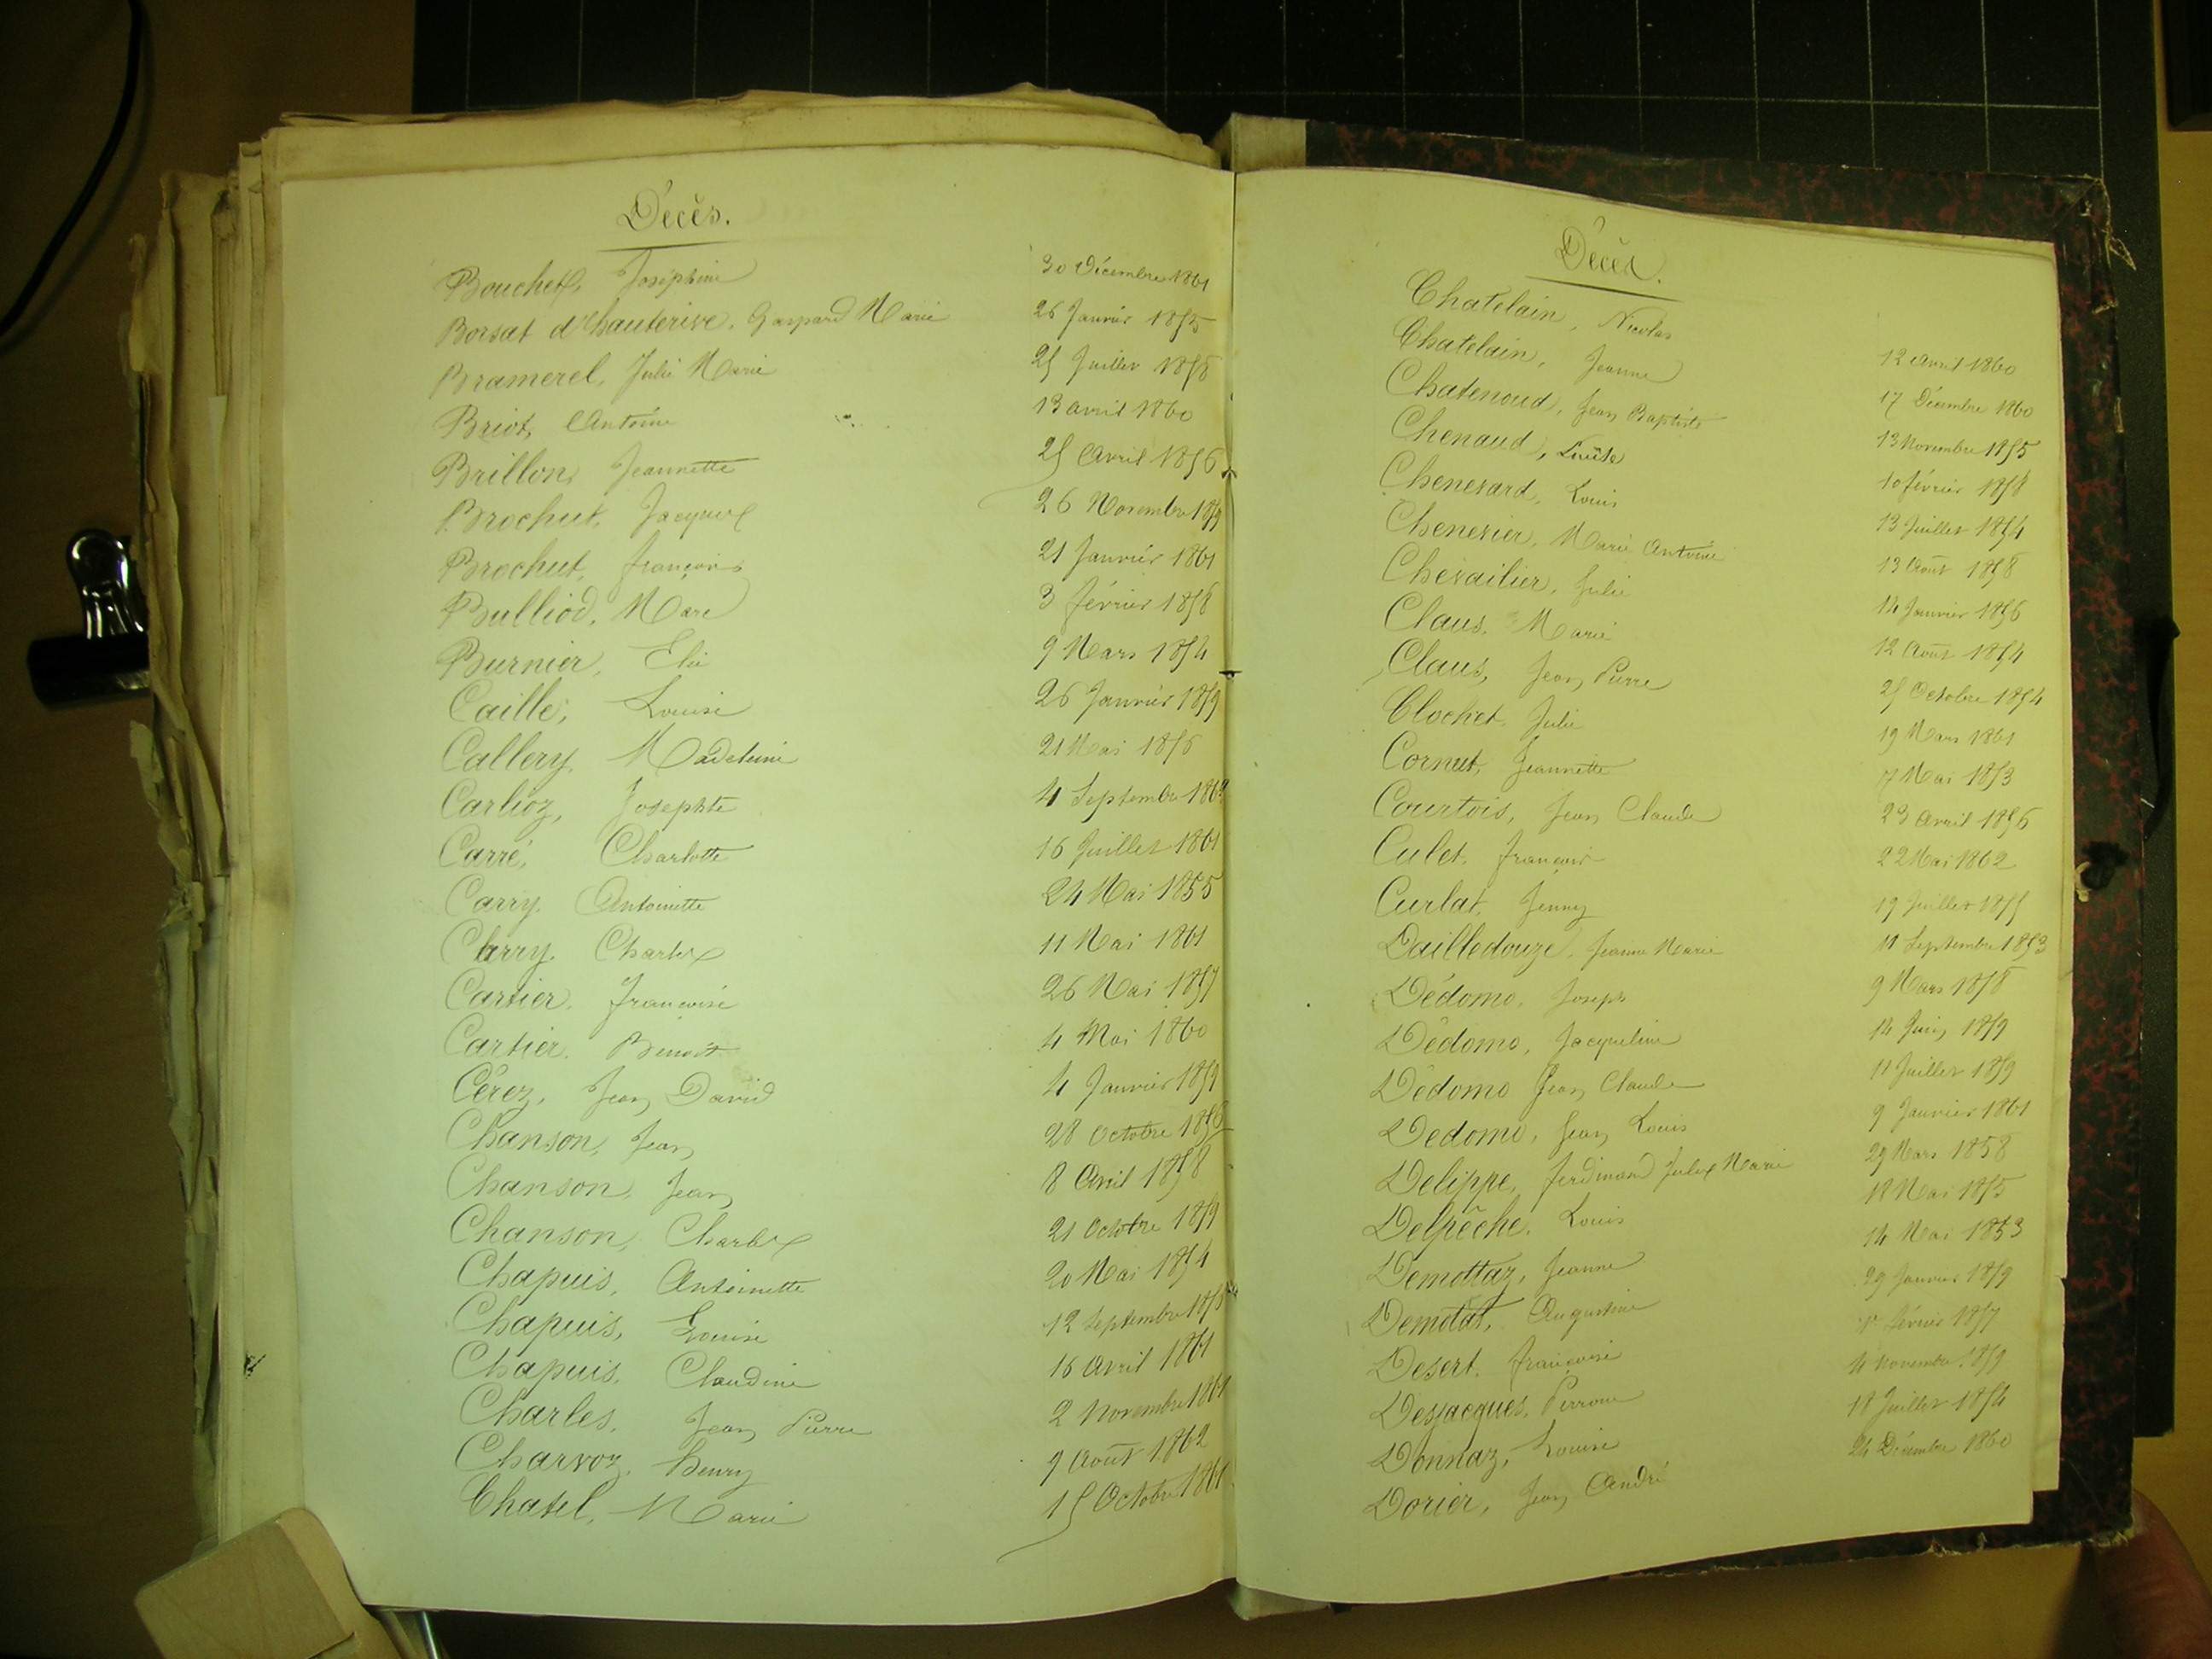 Décès.
Bouchet, Joséphine 30 Décembre 1861
Borsat d'hauterive, Gaspard Marie 26 Janvier 1855
Bramerel, Julie Marie 25 Juillet 1858
Briot, Antoine 13 avril 1860
Brillon, Jeannette 25 Avril 1856
Brochut, Jacques 26 Novembre
Brochut, françois 21 Janvier 1861
Bulliod, Marc 3 février 1858
Burnier, Elie 9 Mars 1854
Caille, Louise 26 Janvier 1859
Callery, Madeleine 21 Mai 1856
Carlioz, Josephte 4 Septembre
Carré, Charlotte 16 Juillet 1861
Carry, Antoinette 24 Mai 1855
Carry, Charles 11 Mai 1861
Cartier, Françoise 26 Mai 1857
Cartier, Benoît 4 Mai 1860
Cérez, Jean David 4 Janvier 1859
Chanson, Jean 28 Octobre 1856
Chanson, Jean 8 Avril 1858
Chanson, Charles 21 Octobre 1859
Chapuis, Antoinette 20 Mai 1854
Chapuis, Louise 12 Septembre
Chapuis, Claudine 16 Avril 1861
Charles, Jean Pierre 2 Novembre 1861
Charvoz, henry 9 Août 1862
Chatel, Marie 15 Octobre 1861
Décès.
Chatelain, Nicolas 12 avril 1860
Chatelain, Jeanne 17 Décembre 1860
Chatenoud, Jean Baptiste 13 Novembre 1855
Chenaud, Louise 10 février 1858
Chenevard, Louis 13 Juillet 1854
Chenevier, Marie Antoine 13 Août 1858
Chevailier, Julie 14 Janvier 1856
Claus, Marie 12 Août 1854
Claus, Jean Pierre 25 Octobre 1854
Clochet, Julie 19 Mars 1861
Cornut, Jeannette 7 Mai 1853
Courtois, Jean Claude 23 Avril 1856
Culet, françois 22 Mai 1862
Curlat, Jenny 19 Juillet 1855
Dailledouze, Jeanne Marie 11 Septembre 1853
Dédomo, Joseph 9 Mars 1858
Dédomo, Jacqueline 14 Juin 1859
Dédomo Jean Claude 11 Juillet 1859
Dedomo, Jean Louis 9 Janvier 1861
Delippe, ferdinand Jules Marie 29 Mars 1858
Delpêche, Louis 18 Mai 1855
Demottaz, Jeanne 14 Mai 1853
Demotat, Augustine 29 Janvier 1859
Desert, françoise février 1857
Desjacques, Perronne 4 Novembre 1859
Donnaz, Louise 18 Juillet 1854
Dorier, Jean André 24 Décembre 1860